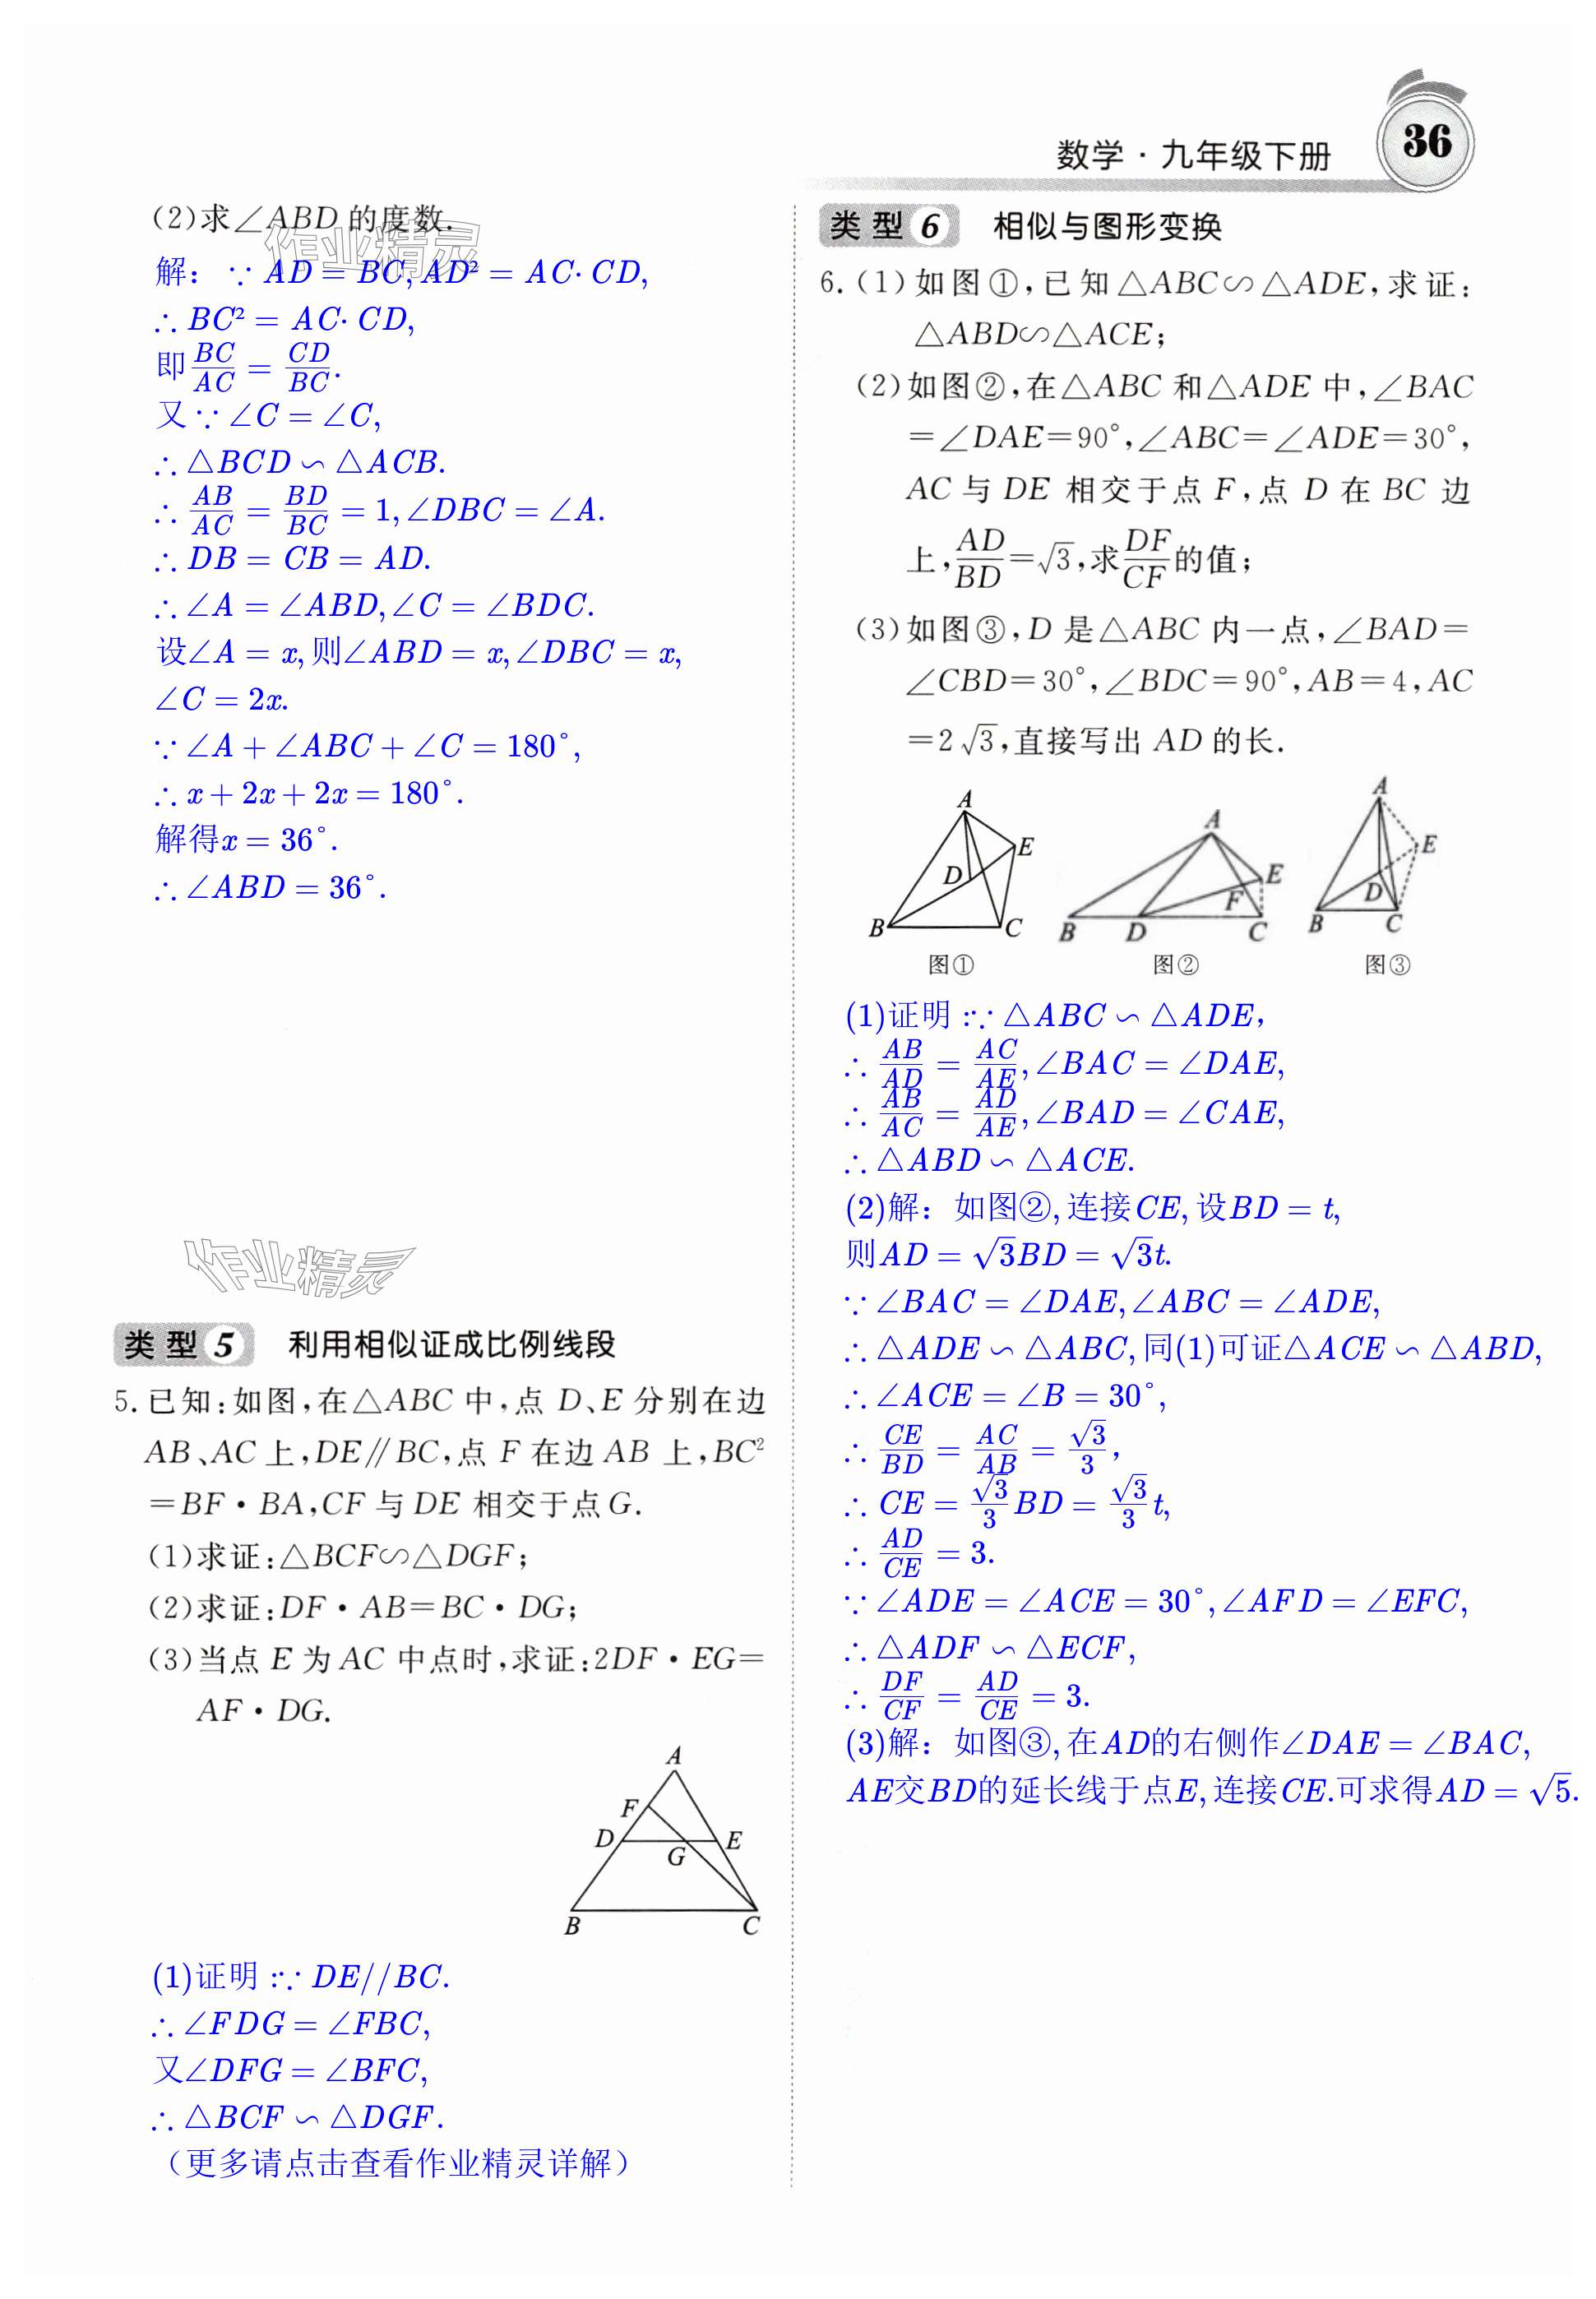 数学·九年级下册
36
(2)求∠ABD的度数.
作业精灵
解：∵AD=BC,AD²=AC·CD,
∴BC²=AC·CD,
即BC/AC=CD/BC.
又∵∠C=∠C,
∴△BCD∽△ACB.
∴AB/AC=BD/BC=1,∠DBC=∠A.
∴DB=CB=AD.
∴∠A=∠ABD,∠C=∠BDC.
设∠A=x,则∠ABD=x,∠DBC=x,
∠C=2x.
∵∠A+∠ABC+∠C=180°,
∴x+2x+2x=180°.
解得x=36°.
∴∠ABD=36°.
作业精灵
类型5 利用相似证成比例线段
5.已知:如图,在△ABC中,点D、E分别在边
AB、AC上,DE∥BC,点F在边AB上,BC²
=BF·BA,CF与DE相交于点G.
(1)求证:△BCF∽△DGF;
(2)求证:DF·AB=BC·DG;
(3)当点E为AC中点时,求证:2DF·EG=
AF·DG.
A
F
D
E
G
B
C
(1)证明:∵DE//BC.
∴∠FDG=∠FBC,
又∠DFG=∠BFC,
∴△BCF∽△DGF.
（更多请点击查看作业精灵详解）
类型6 相似与图形变换
6.(1)如图①,已知△ABC∽△ADE,求证:
△ABD∽△ACE;
(2)如图②,在△ABC和△ADE中,∠BAC
=∠DAE=90°,∠ABC=∠ADE=30°,
AC与DE相交于点F,点D在BC边
上,AD/BD=√3,求DF/CF的值;
(3)如图③,D是△ABC内一点,∠BAD=
∠CBD=30°,∠BDC=90°,AB=4,AC
=2√3,直接写出AD的长.
A
E
D
B
C
图①
A
E
F
B
D
C
图②
A
E
D
B
C
图③
(1)证明:∵△ABC∽△ADE,
∴AB/AD=AC/AE,∠BAC=∠DAE,
∴AB/AC=AD/AE,∠BAD=∠CAE,
∴△ABD∽△ACE.
(2)解：如图②,连接CE,设BD=t,
则AD=√3BD=√3t.
∵∠BAC=∠DAE,∠ABC=∠ADE,
∴△ADE∽△ABC,同(1)可证△ACE∽△ABD,
∴∠ACE=∠B=30°,
∴CE/BD=AC/AB=√3/3,
∴CE=√3/3BD=√3/3t,
∴AD/CE=3.
∵∠ADE=∠ACE=30°,∠AFD=∠EFC,
∴△ADF∽△ECF,
∴DF/CF=AD/CE=3.
(3)解：如图③,在AD的右侧作∠DAE=∠BAC,
AE交BD的延长线于点E,连接CE.可求得AD=√5.